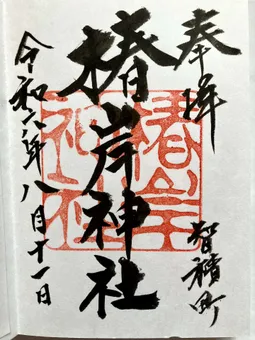 奉拝
智積町
椿岸神社
椿岸神社
令和六年八月十一日